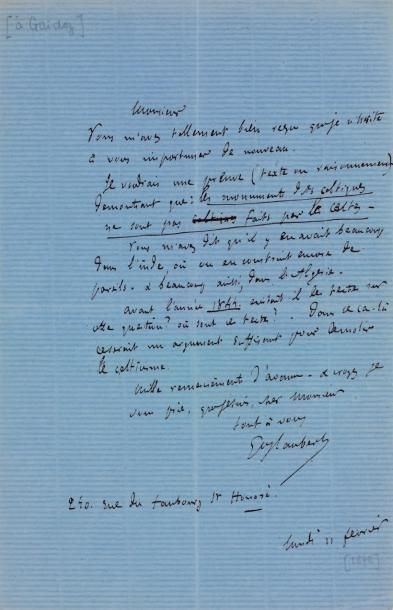 [à Gaidoz]
Monsieur
Vous m'avez tellement bien reçu que je n'hésite
à vous importuner de nouveau.
Je voudrais une preuve (texte ou raisonnement)
démontrant que : les monuments dits celtiques
ne sont pas celtiques faits par les Celtes -
Vous m'avez dit qu'il y en avait beaucoup
dans l'Inde, où on en construit encore de
pareils - & beaucoup aussi, dans l'Algérie -
avant l'année 1844 existait il le texte sur
cette question? où sont ces textes? - Dans ce cas-là
ce serait un argument suffisant pour démolir
le celticisme.
Mille remerciements d'avance - & croyez je
vous prie, que je suis, cher Monsieur
tout à vous
Gve Flaubert
240. rue du faubourg St Honoré.
lundi 11 février